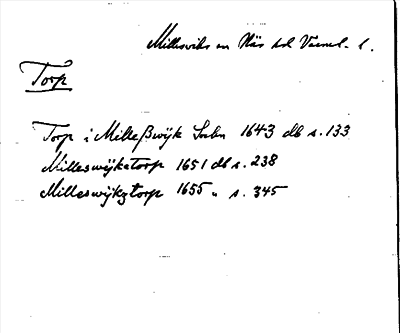 Millesviks sn Näs hd Värml. l.
Torp
Torp i Milleßwijk Sochn 1643 db s. 133
Milleswijkatorp 1651 db s. 238
Milleswijkztorp 1655 " s. 345